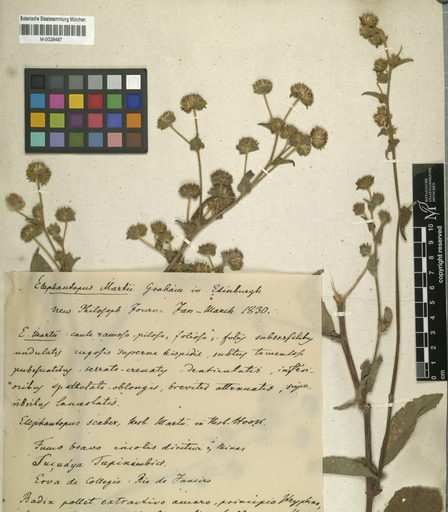 Botanische Staatssammlung München
M-0029497
Elephantopus Martii Graham in Edinburgh
new Philosoph Journ. Jan-March 1830.
E. Martii: caule ramoso, piloso, folioso, foliis subsessilibus
undulatis rugosis superne hispidis, subtus tomentoso
pubescentibus, serrato-crenatis denticulatis, inferi-
oribus spathulato-oblongis, breviter attenuatis, supe-
rioribus lanceolatis.
Elephantopus scaber, Herb. Martii. in Herb. Hook.
Fumo bravo incolis dicitur in Minas
Suçuáya Tupinambice.
Erva de Collegio. Rio de Janeiro
Radix pollet extractivo amaro, principio
copyright reserved
cm